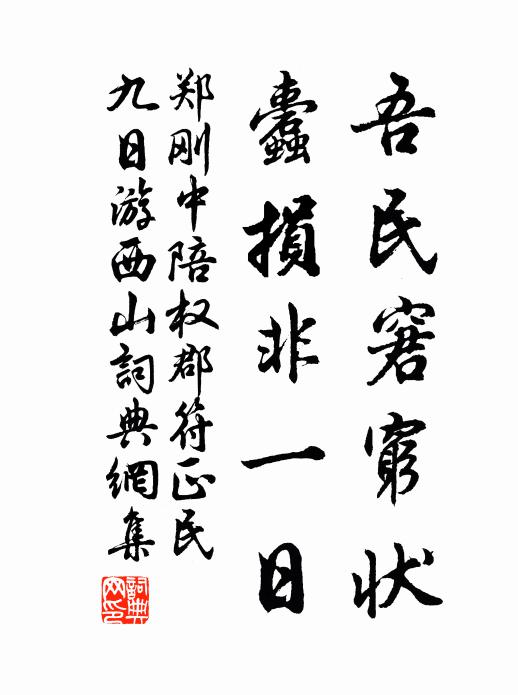 吾民窘窮狀
蠹損非一日
郑刚中陪权郡符正民
九日游西山詞典網集
詞典网印